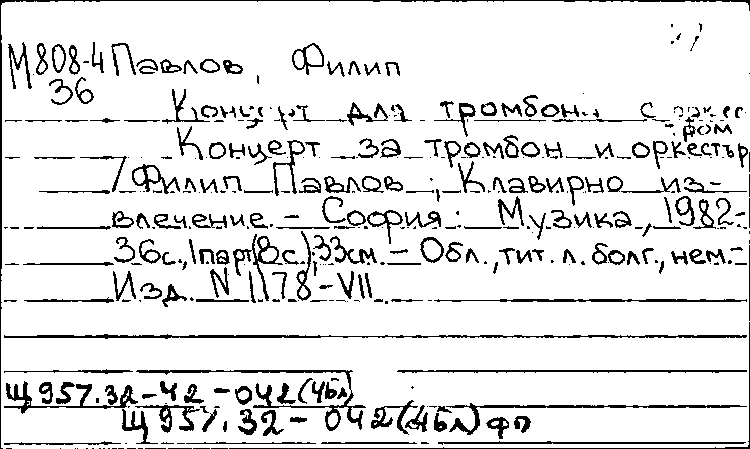 М808-4 Павлов, Филип
36
Концерт для тромбона с оркест-
ром
Концерт за тромбон и оркестър
/ Филип Павлов ; Клавирно из-
влечение. - София : Музика, 1982-
36с., 1парт(8с.);33см. - Обл., тит. л. болг., нем.-
Изд. N 1178-VII
Щ957.32-42-042(4Бл)
Щ957.32-042(4Бл)фп